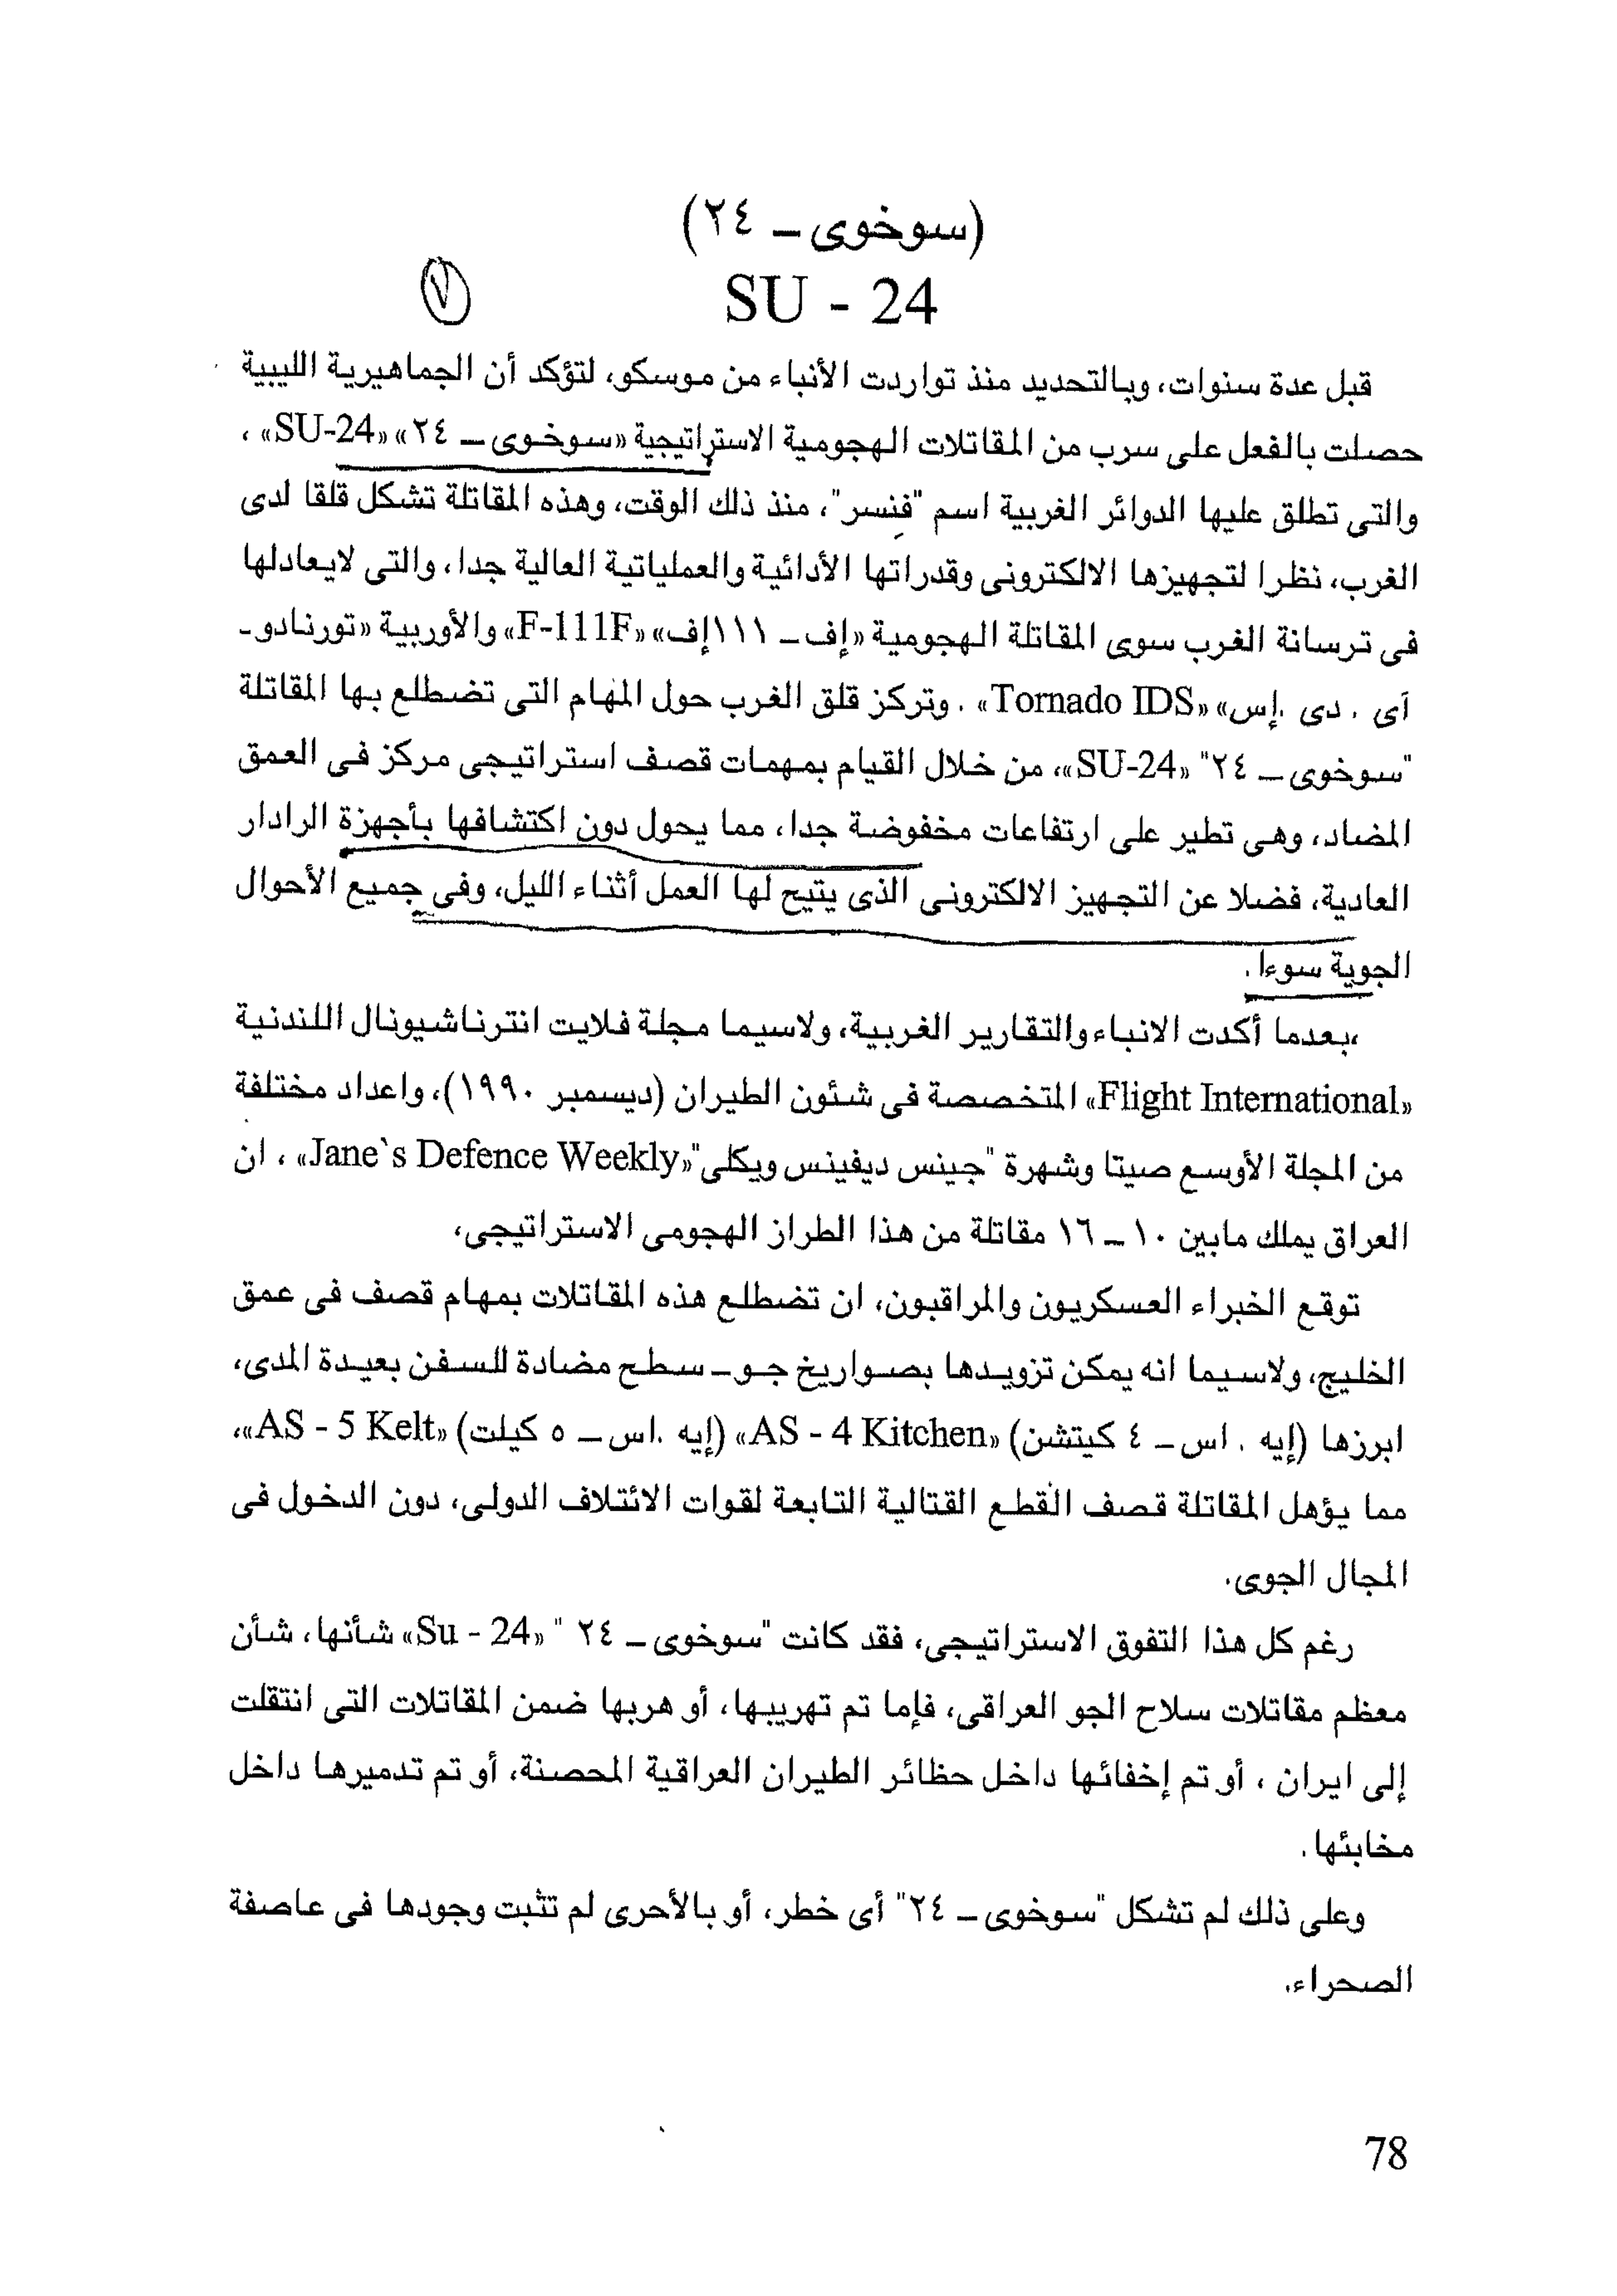 (سوخوى ـ ٢٤)
SU - 24
٧
قبل عدة سنوات، وبالتحديد منذ تواردت الأنباء من موسكو، لتؤكد أن الجماهيرية الليبية
حصلت بالفعل على سرب من المقاتلات الهجومية الاستراتيجية «سوخوى ـ ٢٤» «SU-24» ،
والتى تطلق عليها الدوائر الغربية اسم "فنسر"، منذ ذلك الوقت، وهذه المقاتلة تشكل قلقا لدى
الغرب، نظرا لتجهيزها الالكترونى وقدراتها الأدائية والعملياتية العالية جدا، والتى لايعادلها
فى ترسانة الغرب سوى المقاتلة الهجومية «إف ـ ١١١إف» «F-111F» والأوربية «تورنادو ـ
آى . دى .إس» «Tornado IDS» . وتركز قلق الغرب حول المهام التى تضطلع بها المقاتلة
"سوخوى ـ ٢٤" «SU-24»، من خلال القيام بمهمات قصف استراتيجى مركز فى العمق
المضاد، وهى تطير على ارتفاعات مخفوضة جدا، مما يحول دون اكتشافها بأجهزة الرادار
العادية، فضلا عن التجهيز الالكترونى الذى يتيح لها العمل أثناء الليل، وفى جميع الأحوال
الجوية سوءا .
،بعدما أكدت الانباء والتقارير الغربية، ولاسيما مجلة فلايت انترناشيونال اللندنية
«Flight International» المتخصصة فى شئون الطيران (ديسمبر ١٩٩٠)، واعداد مختلفة
من المجلة الأوسع صيتا وشهرة "جينس ديفينس ويكلى"«Jane`s Defence Weekly» ، ان
العراق يملك مابين ١٠ ـ ١٦ مقاتلة من هذا الطراز الهجومى الاستراتيجى،
توقع الخبراء العسكريون والمراقبون، ان تضطلع هذه المقاتلات بمهام قصف فى عمق
الخليج، ولاسيما انه يمكن تزويدها بصواريخ جو ـ سطح مضادة للسفن بعيدة المدى،
ابرزها (إيه . اس ـ ٤ كيتشن) «AS - 4 Kitchen» (إيه .اس ـ ٥ كيلت) «AS - 5 Kelt»،
مما يؤهل المقاتلة قصف القطع القتالية التابعة لقوات الائتلاف الدولى، دون الدخول فى
المجال الجوى.
رغم كل هذا التفوق الاستراتيجى، فقد كانت "سوخوى ـ ٢٤ " «Su - 24» شأنها، شأن
معظم مقاتلات سلاح الجو العراقى، فإما تم تهريبها، أو هربها ضمن المقاتلات التى انتقلت
إلى ايران ، أو تم إخفائها داخل حظائر الطيران العراقية المحصنة، أو تم تدميرها داخل
مخابئها .
وعلى ذلك لم تشكل "سوخوى ـ ٢٤" أى خطر، أو بالأحرى لم تثبت وجودها فى عاصفة
الصحراء.
78